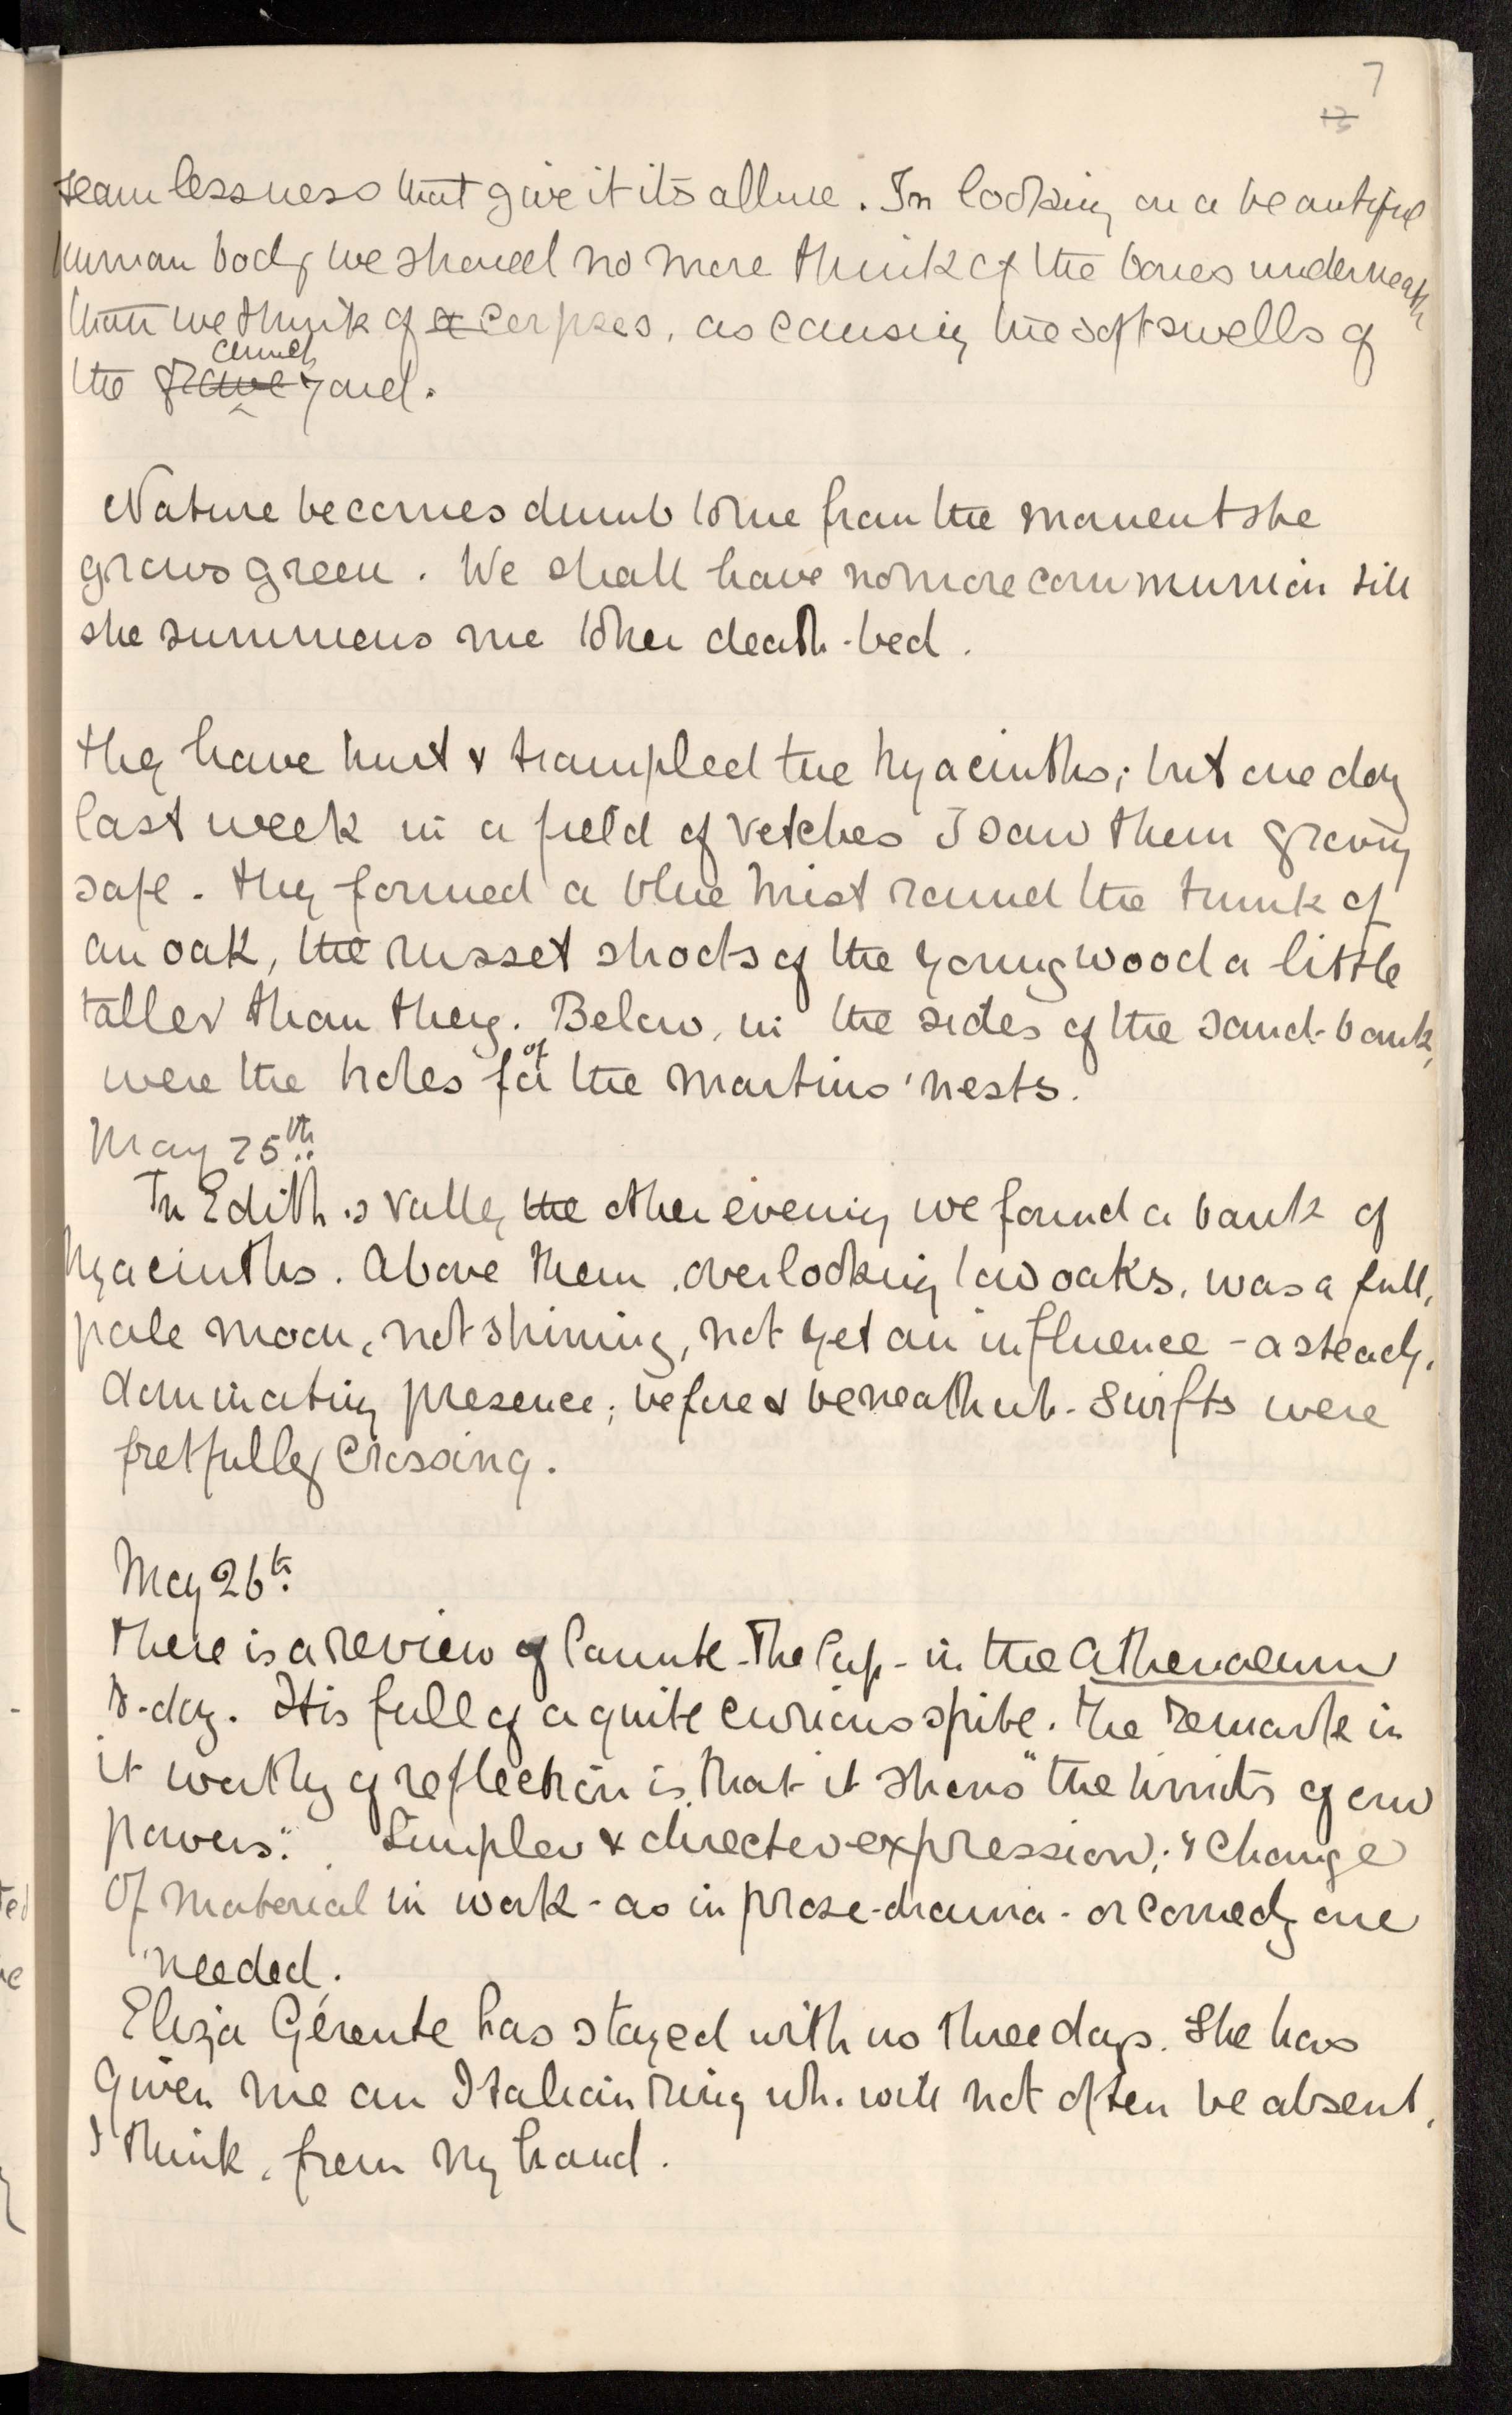 7
13
seamlessness that give it its allure. In looking on a beautiful
human body we should no more think of the bones underneath
than we think of a corpses, as causing the soft swells of
church
the grave yard.
Nature becomes dumb to me from the moment she
grows green. We shall have no more communion till
she summons me to her death-bed.
They have hurt & trampled the hyacinths; but one day
last week in a field of vetches I saw them growing
safe. They formed a blue mist round the trunk of
an oak, the russet shoots of the young wood a little
taller than they. Below, in the sides of the sand-bank,
of
were the holes for the martins' nests.
May 25th
In Edith's Valley the other evening we found a bank of
hyacinths. Above them, overlooking low oaks, was a full,
pale moon, not shining, not yet an influence - a steady,
dominating presence; before & beneath wh. swifts were
fretfully crossing.
May 26th
There is a review of Canute - The Cup - in the Athenaeum
to-day. It is full of a quite curious spite. The remark in
it worthy of reflection is, that it shows "the limits of our
powers." Simpler & directer expression; & change
of material in work - as in prose-drama - or comedy are
needed.
Eliza Gérente has stayed with us three days. She has
given me an Italian ring wh. will not often be absent,
I think, from my hand.